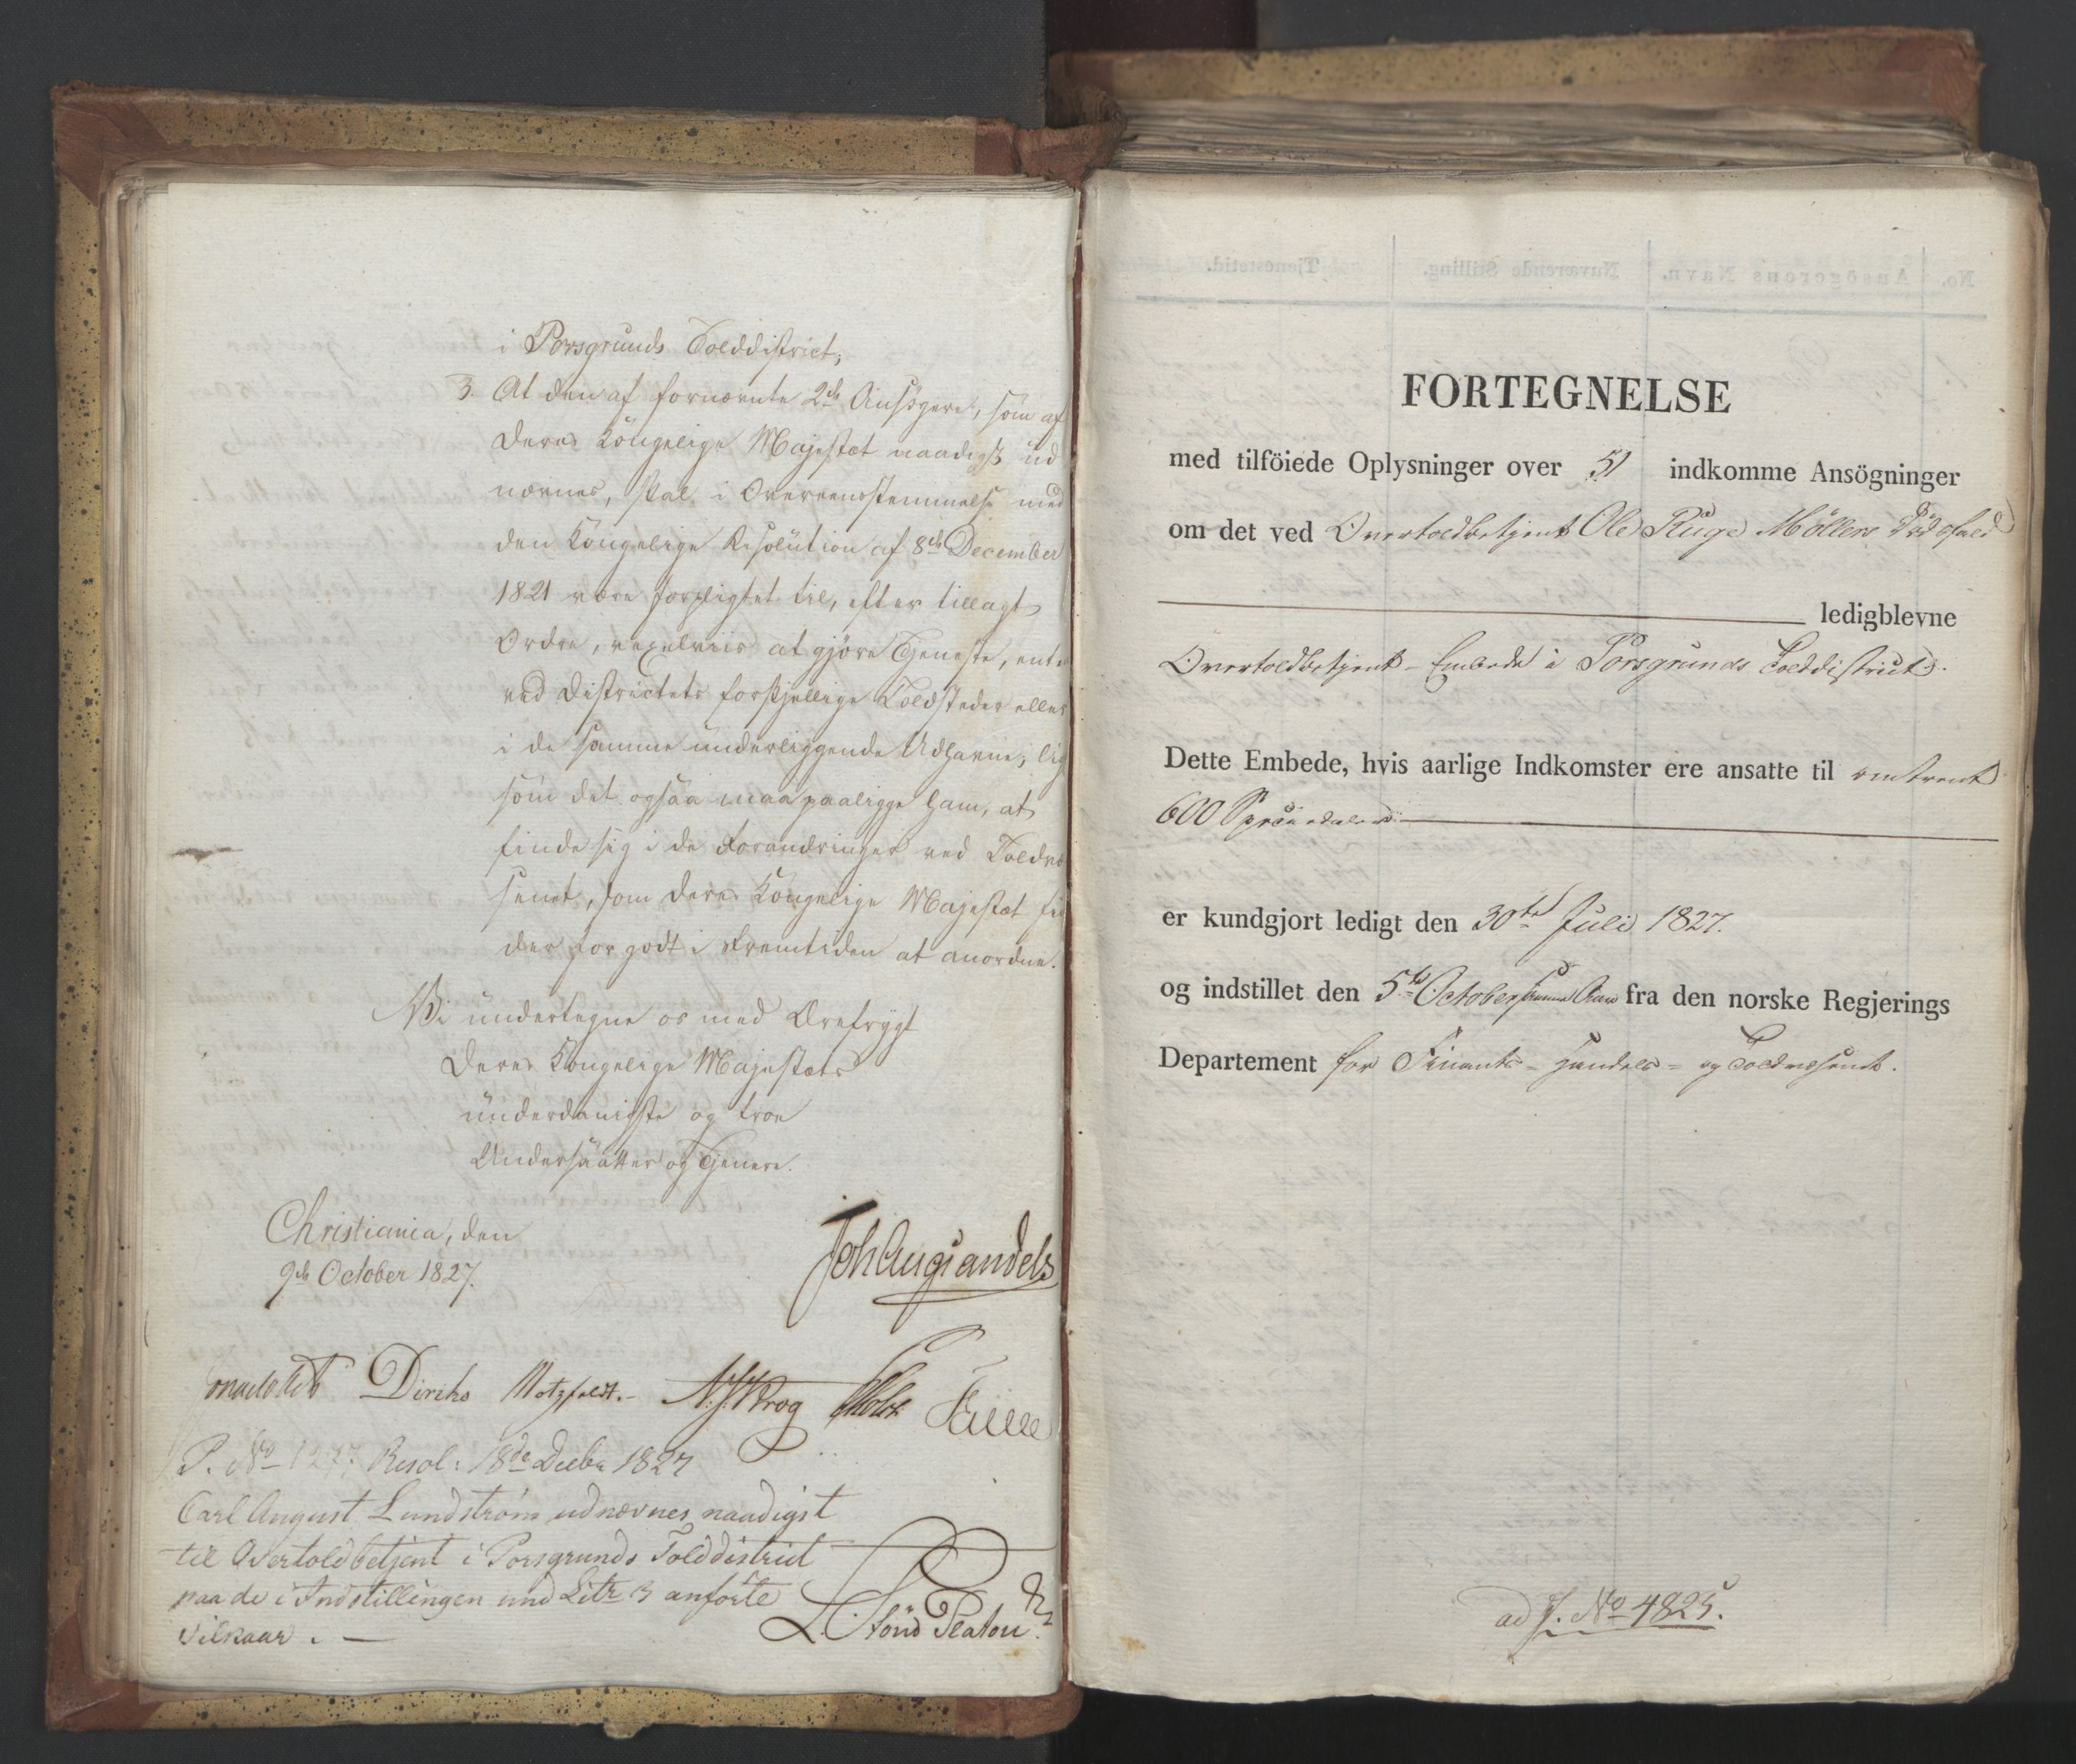 i Porsgrunds Tolddistrict;
3. At den af fornævnte 2de Ansøgere, som af
Deres Kongelige Majestæt naadigst ud
nævnes, skal i Overeensstemmelse med
den Kongelige Resolution af 8de December
1821 være forpligtet til, efter tillagt
Ordre, vexelviis at gjøre Tjeneste, enten
ved Districtets forskjellige Toldsteder eller
i de samme underliggende Udhavne, lig
som det ogsaa maa paaligge ham, at
finde sig i de Forandringer ved Toldvæ
senet, som Deres Kongelige Majestæt fin
der for godt i Fremtiden at anordne.
Vi undertegne os med Ærefrygt
Deres Kongelige Majestæts
underdanigste og troe
Undersaatter og Tjenere.
Christiania, den
9de October 1827.
Joh Aug Sandels
Diriks Motzfeldt. N. J. Krog
P. No Resol: 18de Decbr 1827
Carl August Lundstrøm udnævnes naadigst
til Overtoldbetjent i Porsgrunds Tolddistrict
paa de i Indstillingen und Litr 3 anførte
Vilkaar. —
FORTEGNELSE
med tilföiede Oplysninger over 51 indkomme Ansögninger
om det ved Overtoldbetjent Ole Ruge Möllers Dödsfald
ledigblevne
Overtoldbetjent-Embede i Porsgrunds Tolddistrict.
Dette Embede, hvis aarlige Indkomster ere ansatte til omtrent
600 Speciedaler
er kundgjort ledigt den 30te Juli 1827.
og indstillet den 5te October samme Aar fra den norske Regjerings
Departement for Finants- Handels- og Toldvæsenet.
ad J. No 4825.